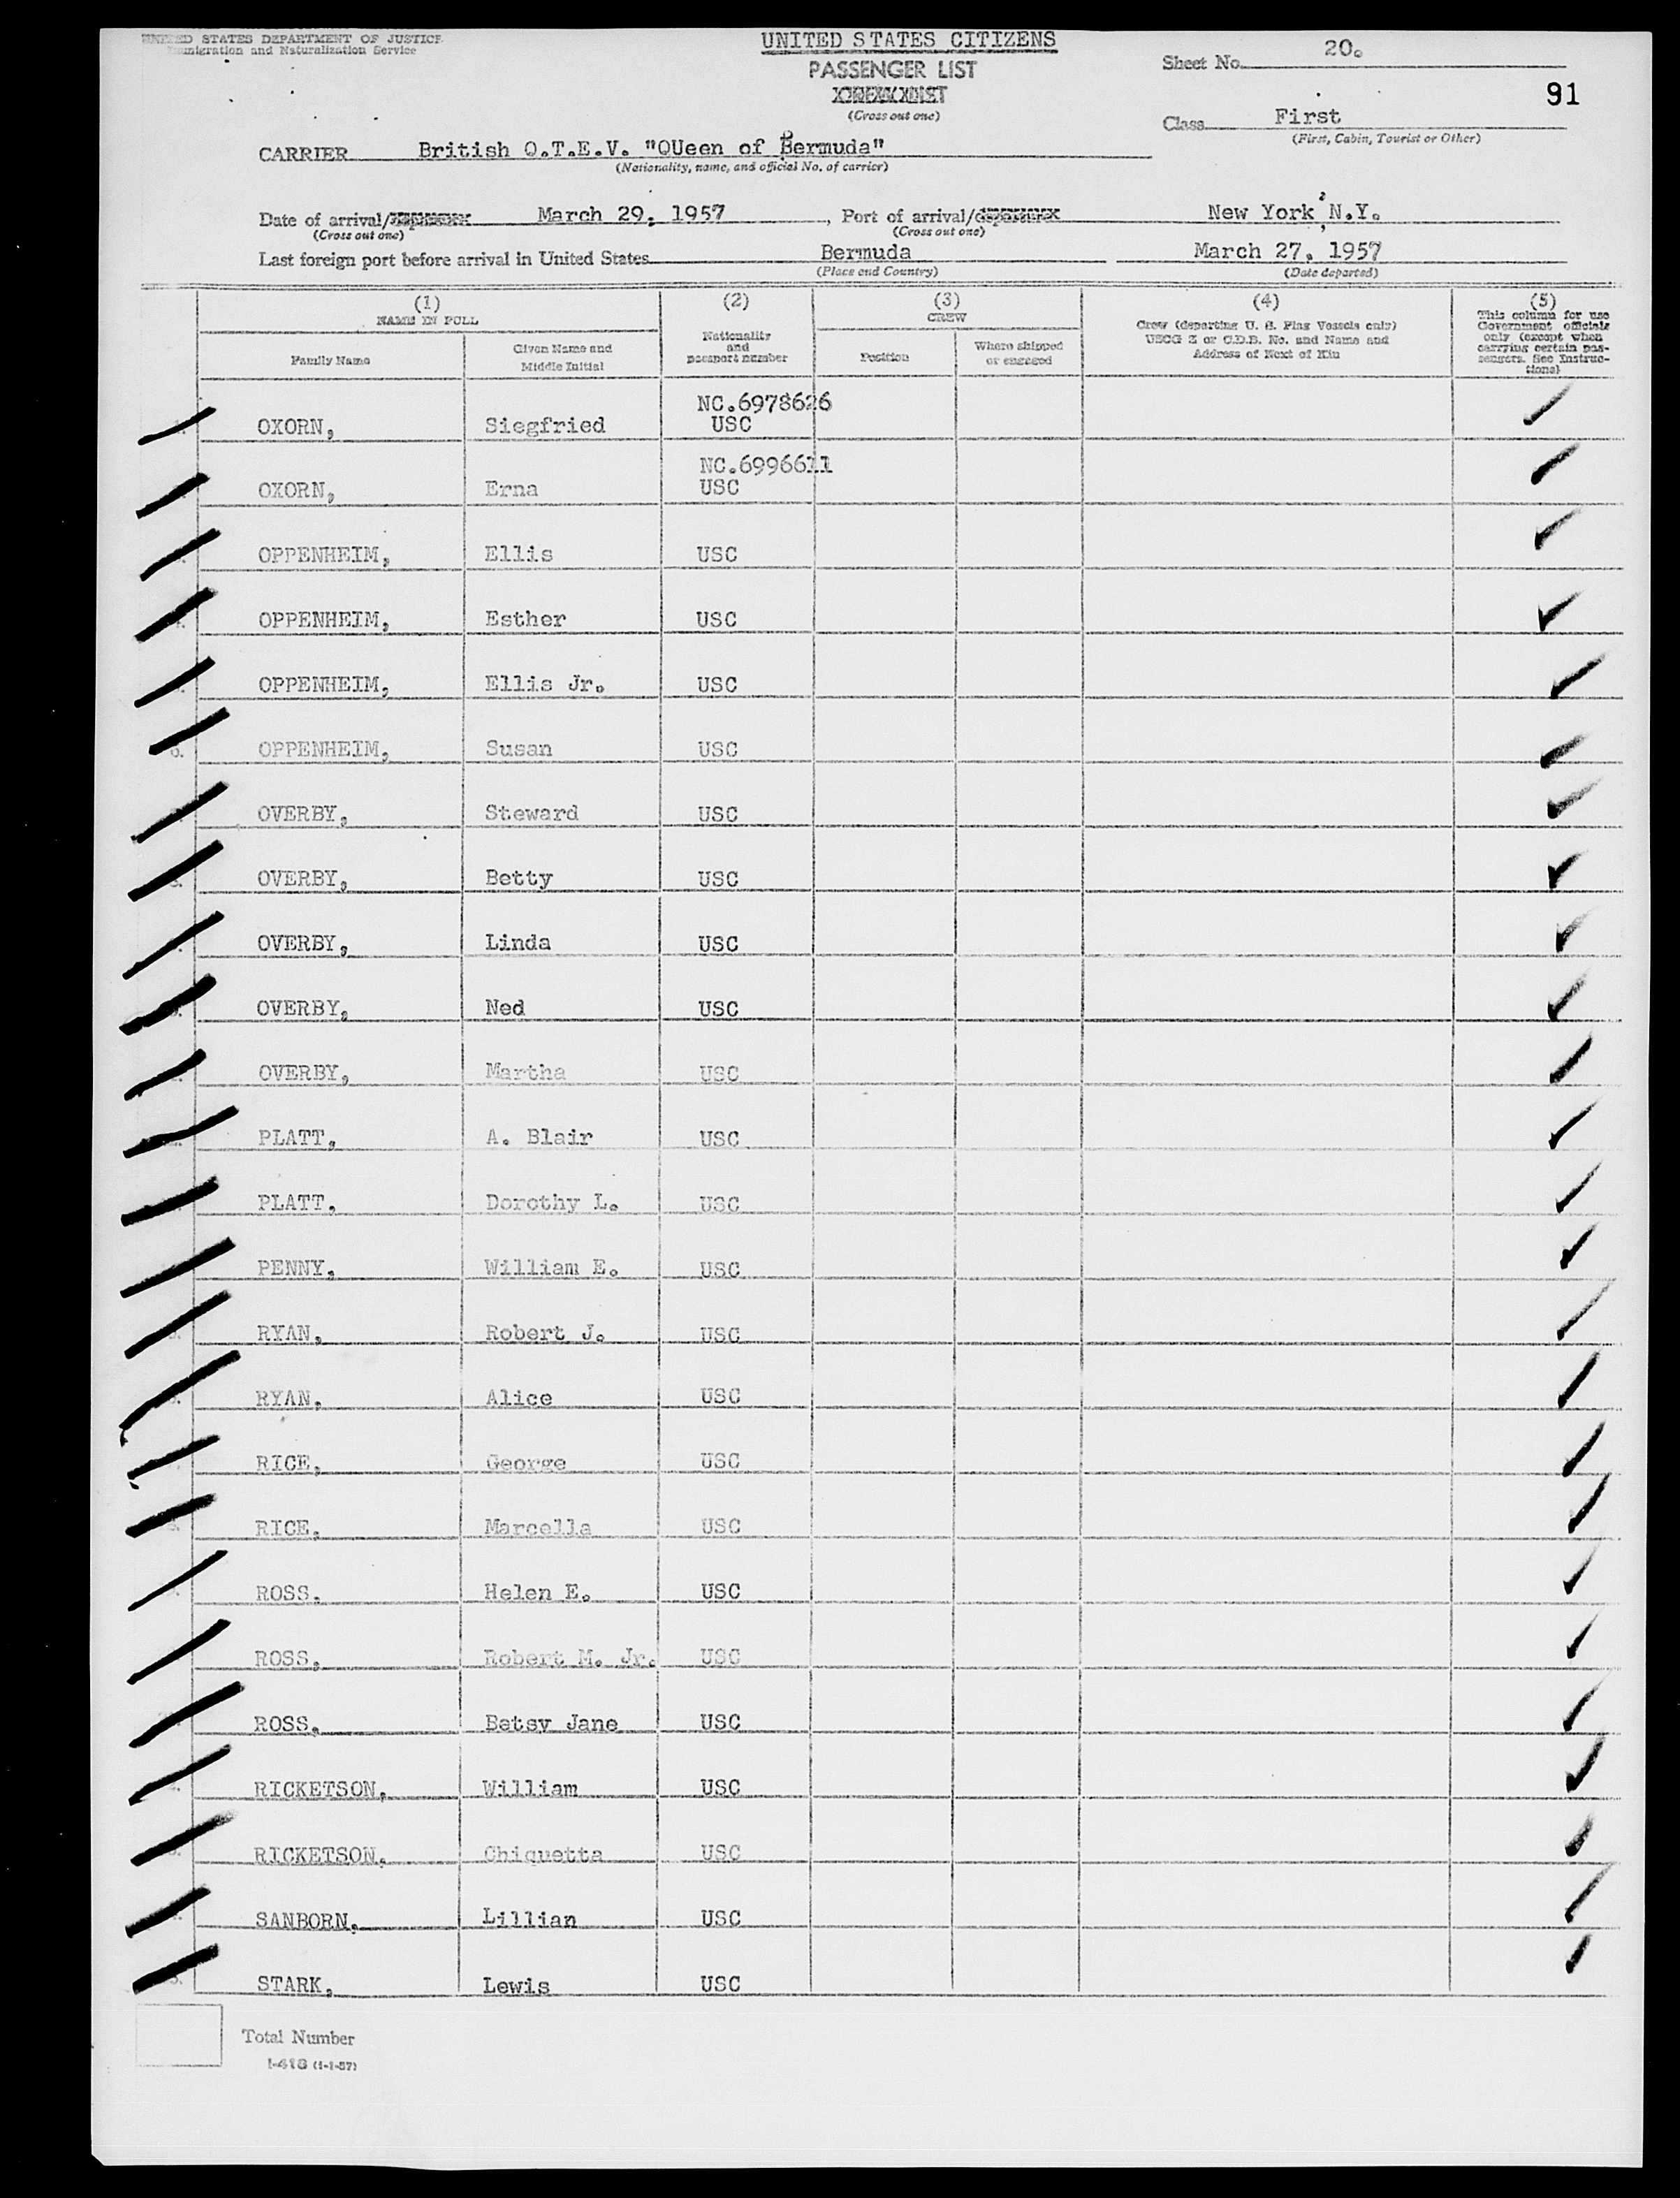 UNITED STATES DEPARTMENT OF JUSTICE
Immigration and Naturalization Service
UNITED STATES CITIZENS
PASSENGER LIST
(Cross out one)
Sheet No. 20.
91
Class First
(First, Cabin, Tourist or Other)
CARRIER British Q.T.E.V. "QUeen of Bermuda"
(Nationality, name, and official No. of carrier)
Date of arrival/ March 29, 1957, Port of arrival/departure New York, N.Y.
(Cross out one) (Cross out one)
Last foreign port before arrival in United States Bermuda March 27, 1957
(Place and Country) (Date departed)
(1) (2) (3) (4) (5)
NAME IN FULL
Family Name
Given Name and
Middle Initial
Nationality
and
passport number
CREW
Position
Where shipped
or engaged
Crew (departing U. S. Flag Vessels only)
USCG Z or C.D.B. No. and Name and
Address of Next of Kin
This column for use
Government officials
only (except when
carrying certain pas-
sengers. See Instruc-
tions)
NO.6978626
OXORN, Siegfried USC
NO.6996611
OXORN, Erna USC
OPPENHEIM, Ellis USC
OPPENHEIM, Esther USC
OPPENHEIM, Ellis Jr. USC
6. OPPENHEIM, Susan USC
OVERBY, Steward USC
OVERBY, Betty USC
OVERBY, Linda USC
OVERBY, Ned USC
OVERBY, Martha USC
PLATT, A. Blair USC
PLATT, Dorothy L. USC
PENNY, William E. USC
RYAN, Robert J. USC
RYAN, Alice USC
RICE, George USC
RICE, Marcella USC
ROSS, Helen E. USC
ROSS, Robert M. Jr. USC
ROSS, Betsy Jane USC
RICKETSON, William USC
RICKETSON, Chiquetta USC
SANBORN, Lillian USC
STARK, Lewis USC
Total Number
I-418 (1-1-57)